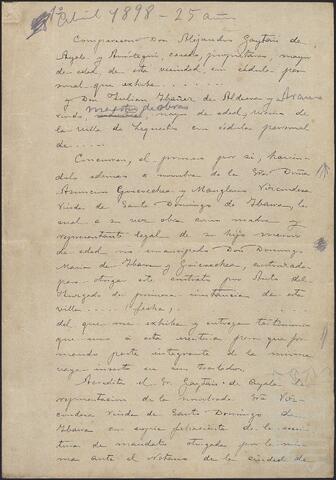 1º Abril 1898 - 25 años
Comparecen Don Alejandro Gaytán de
Ayala y Amézaga, casado, propietario, mayor
de edad, de esta vecindad, con cédula per
sonal que exhibe.......
y Don Julian Ibáñez de Aldecoa y
maestro de obras
viudo, mayor de edad, vecino de
la villa de Lequeitio con cédula personal
de.....
Concurren, el primero por si, hacien
dolo además a nombre de la Sra Doña
Asuncion Goicoechea y Manglano Vizcondesa
Viuda de Santo Domingo de Ibarra, la
cual a su vez obra como madre y
representante legal de su hijo menor
de edad no emancipado Don Domingo
Maria de Ibarra y Goicoechea, autorizada
para otorgar este contrato por Auto del
Juzgado de primera instancia de esta
villa..... fecha,....
del que me exhibe y entrega testimonio
que uno á esta escritura para que for
mando parte integrante de la misma
vaya inserto en sus traslados.
Acredita el Sr Gaytán de Ayala la
representacion de la nombrada Sra Viz-
condesa Viuda de Santo Domingo de
Ibarra con copia fehaciente de la escri
tura de mandato otorgada por la mis
ma ante el Notario de la ciudad de